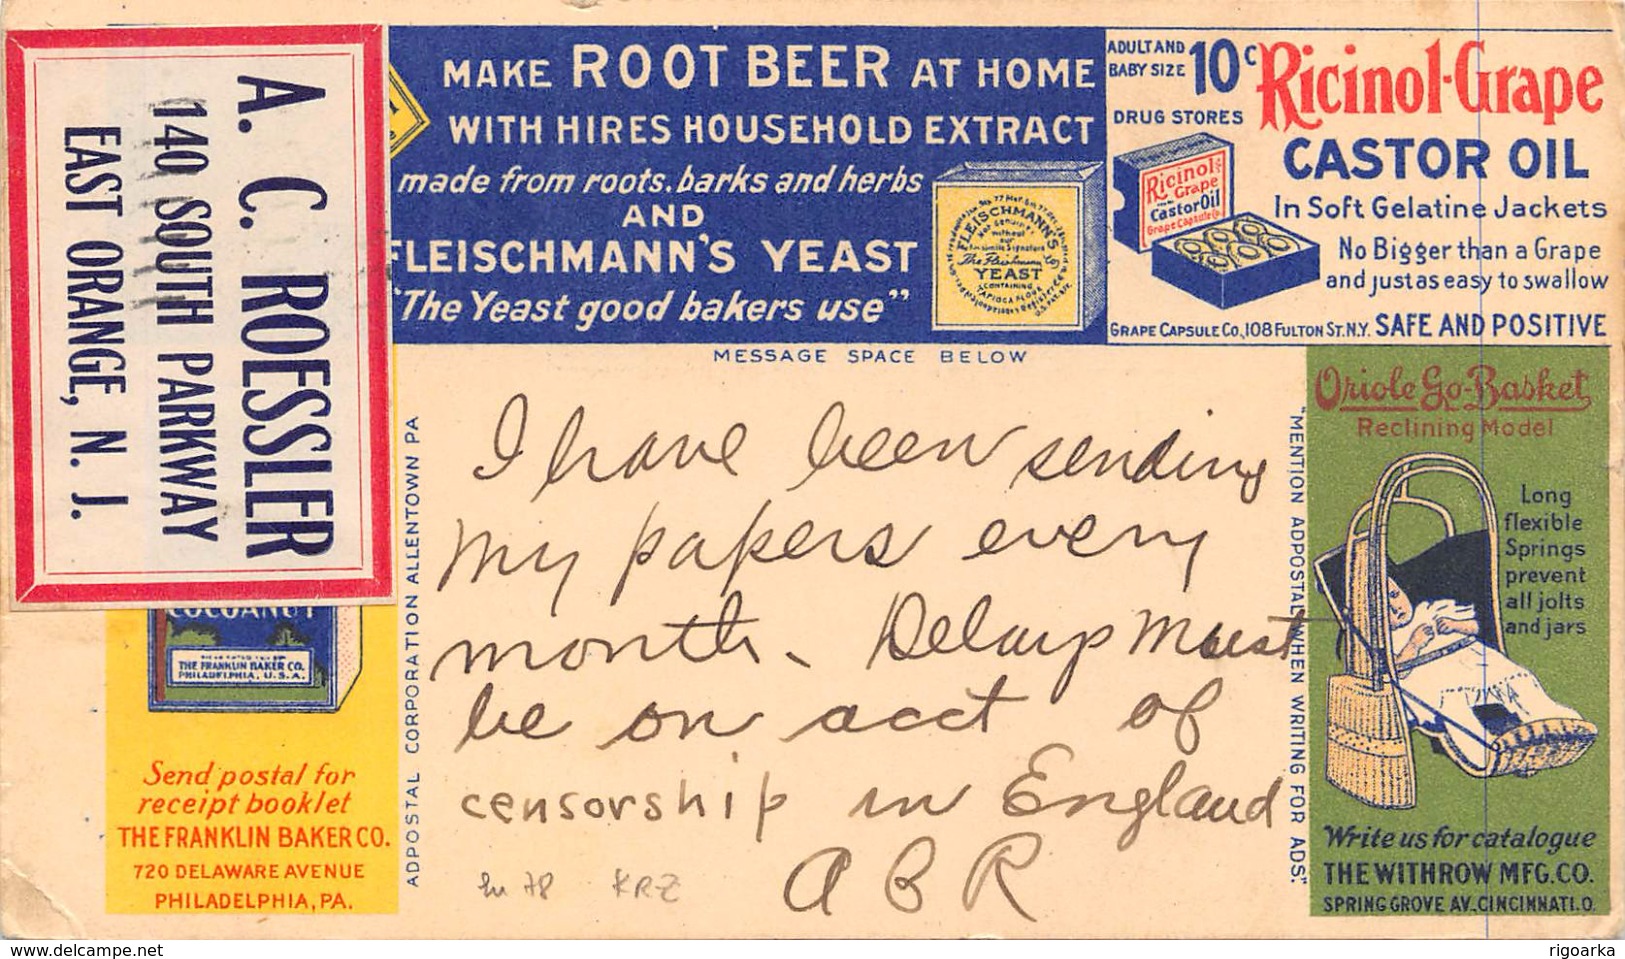 A. C. ROESSLER
140 SOUTH PARKWAY
EAST ORANGE, N. J.
MAKE ROOT BEER AT HOME
WITH HIRES HOUSEHOLD EXTRACT
made from roots. barks and herbs
AND
FLEISCHMANN'S YEAST
"The Yeast good bakers use"
FLEISCHMANN'S
YEAST
CONTAINING
TAPIOCA FLOUR
ADULT AND
BABY SIZE 10c
DRUG STORES
Ricinol-Grape
CASTOR OIL
In Soft Gelatine Jackets
No Bigger than a Grape
and just as easy to swallow
Ricinol
Grape
Castor Oil
Grape Capsule Co.
GRAPE CAPSULE CO., 108 FULTON ST. N.Y. SAFE AND POSITIVE
MESSAGE SPACE BELOW
ADPOSTAL CORPORATION ALLENTOWN PA
I have been sending
my papers every
month. Delays must
be on acct of
censorship in England
ABR
KRZ
"MENTION ADPOSTAL WHEN WRITING FOR ADS."
Oriole Go-Basket
Reclining Model
Long
flexible
Springs
prevent
all jolts
and jars
Write us for catalogue
THE WITHROW MFG. CO.
SPRING GROVE AV. CINCINNATI. O.
COCOANUT
THE FRANKLIN BAKER CO.
PHILADELPHIA, U.S.A.
Send postal for
receipt booklet
THE FRANKLIN BAKER CO.
720 DELAWARE AVENUE
PHILADELPHIA, PA.
www.delcampe.net
rigoarka